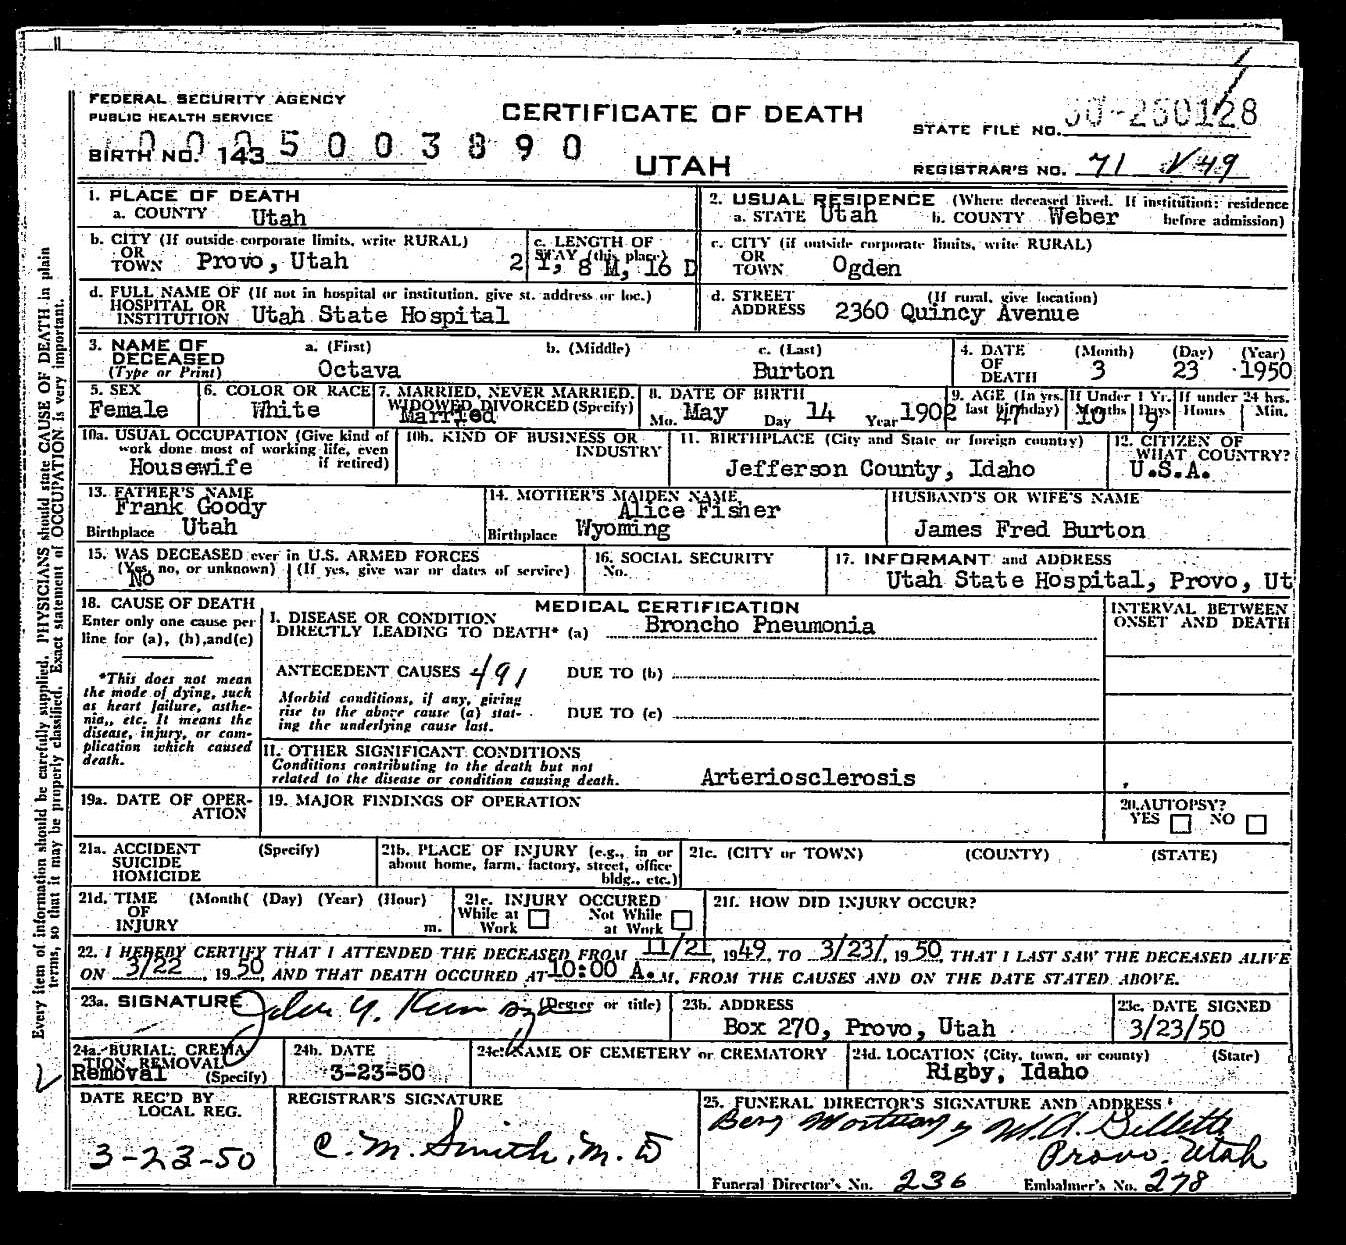 FEDERAL SECURITY AGENCY
PUBLIC HEALTH SERVICE
CERTIFICATE OF DEATH
UTAH
STATE FILE NO. 50-250128
0005003890
BIRTH NO. 143
REGISTRAR'S NO. 71 V49
1. PLACE OF DEATH
a. COUNTY Utah
2. USUAL RESIDENCE (Where deceased lived. If institution: residence before admission)
a. STATE Utah b. COUNTY Weber
b. CITY (If outside corporate limits, write RURAL)
OR
TOWN Provo, Utah
c. LENGTH OF
STAY (this place)
2 Y, 8 M, 16 D
c. CITY (if outside corporate limits, write RURAL)
OR
TOWN Ogden
d. FULL NAME OF (If not in hospital or institution, give st. address or loc.)
HOSPITAL OR
INSTITUTION Utah State Hospital
d. STREET (If rural, give location)
ADDRESS 2360 Quincy Avenue
3. NAME OF DECEASED
(Type or Print)
a. (First) b. (Middle) c. (Last)
Octava Burton
4. DATE OF DEATH (Month) (Day) (Year)
3 23 1950
5. SEX
Female
6. COLOR OR RACE
White
7. MARRIED, NEVER MARRIED,
WIDOWED, DIVORCED (Specify)
Married
8. DATE OF BIRTH
Mo. May Day 14 Year 1902
9. AGE (In yrs. last birthday) 47
If Under 1 Yr. Months 10 Days 9
If under 24 hrs. Hours Min.
10a. USUAL OCCUPATION (Give kind of
work done most of working life, even
if retired)
Housewife
10b. KIND OF BUSINESS OR
INDUSTRY
11. BIRTHPLACE (City and State or foreign country)
Jefferson County, Idaho
12. CITIZEN OF
WHAT COUNTRY?
U.S.A.
13. FATHER'S NAME
Frank Goody
Birthplace Utah
14. MOTHER'S MAIDEN NAME
Alice Fisher
Birthplace Wyoming
HUSBAND'S OR WIFE'S NAME
James Fred Burton
15. WAS DECEASED ever in U.S. ARMED FORCES
(Yes, no, or unknown) (If yes, give war or dates of service)
No
16. SOCIAL SECURITY
No.
17. INFORMANT and ADDRESS
Utah State Hospital, Provo, Ut
18. CAUSE OF DEATH
Enter only one cause per
line for (a), (b), and (c)
*This does not mean
the mode of dying, such
as heart failure, asthe-
nia,, etc. It means the
disease, injury, or com-
plication which caused
death.
MEDICAL CERTIFICATION
I. DISEASE OR CONDITION
DIRECTLY LEADING TO DEATH* (a) Broncho Pneumonia
ANTECEDENT CAUSES 491 DUE TO (b)
Morbid conditions, if any, giving
rise to the above cause (a) stat-
ing the underlying cause last.
DUE TO (c)
INTERVAL BETWEEN
ONSET AND DEATH
II. OTHER SIGNIFICANT CONDITIONS
Conditions contributing to the death but not
related to the disease or condition causing death. Arteriosclerosis
19a. DATE OF OPER-
ATION
19. MAJOR FINDINGS OF OPERATION
20. AUTOPSY?
YES NO
21a. ACCIDENT (Specify)
SUICIDE
HOMICIDE
21b. PLACE OF INJURY (e.g., in or
about home, farm, factory, street, office
bldg., etc.)
21c. (CITY or TOWN) (COUNTY) (STATE)
21d. TIME (Month( (Day) (Year) (Hour)
OF
INJURY m.
21e. INJURY OCCURED
While at Work Not While at Work
21f. HOW DID INJURY OCCUR?
22. I HEREBY CERTIFY THAT I ATTENDED THE DECEASED FROM 11/21, 1949, TO 3/23/, 1950, THAT I LAST SAW THE DECEASED ALIVE
ON 3/22, 1950, AND THAT DEATH OCCURED AT 10:00 A.M, FROM THE CAUSES AND ON THE DATE STATED ABOVE.
23a. SIGNATURE (Degree or title)
23b. ADDRESS
Box 270, Provo, Utah
23c. DATE SIGNED
3/23/50
24a. BURIAL, CREMA-
TION REMOVAL
Removal (Specify)
24b. DATE
3-23-50
24c. NAME OF CEMETERY or CREMATORY
24d. LOCATION (City, town, or county) (State)
Rigby, Idaho
DATE REC'D BY
LOCAL REG.
3-23-50
REGISTRAR'S SIGNATURE
C. M. Smith, M. D
25. FUNERAL DIRECTOR'S SIGNATURE AND ADDRESS
Berg Mortuary by W. A. Gillette
Provo, Utah
Funeral Director's No. 236 Embalmer's No. 278
Every item of information should be carefully supplied. PHYSICIANS should state CAUSE OF DEATH in plain
terms, so that it may be properly classified. Exact statement of OCCUPATION is very important.